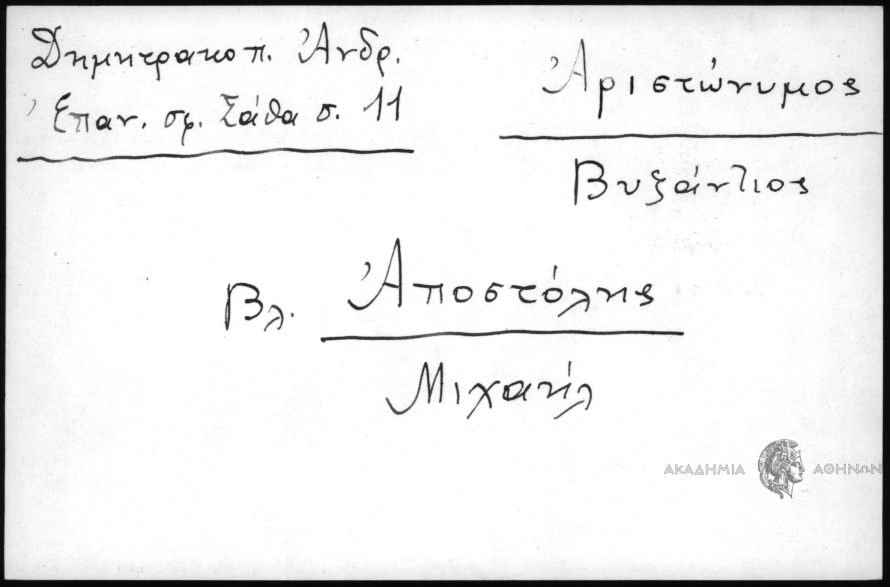 Δημητρακοπ. Ἀνδρ.
Ἐπαν. σφ. Σάθα σ. 11
Ἀριστώνυμος
Βυζάντιος
Βλ. Ἀποστόλης
Μιχαήλ
ΑΚΑΔΗΜΙΑ ΑΘΗΝΩΝ